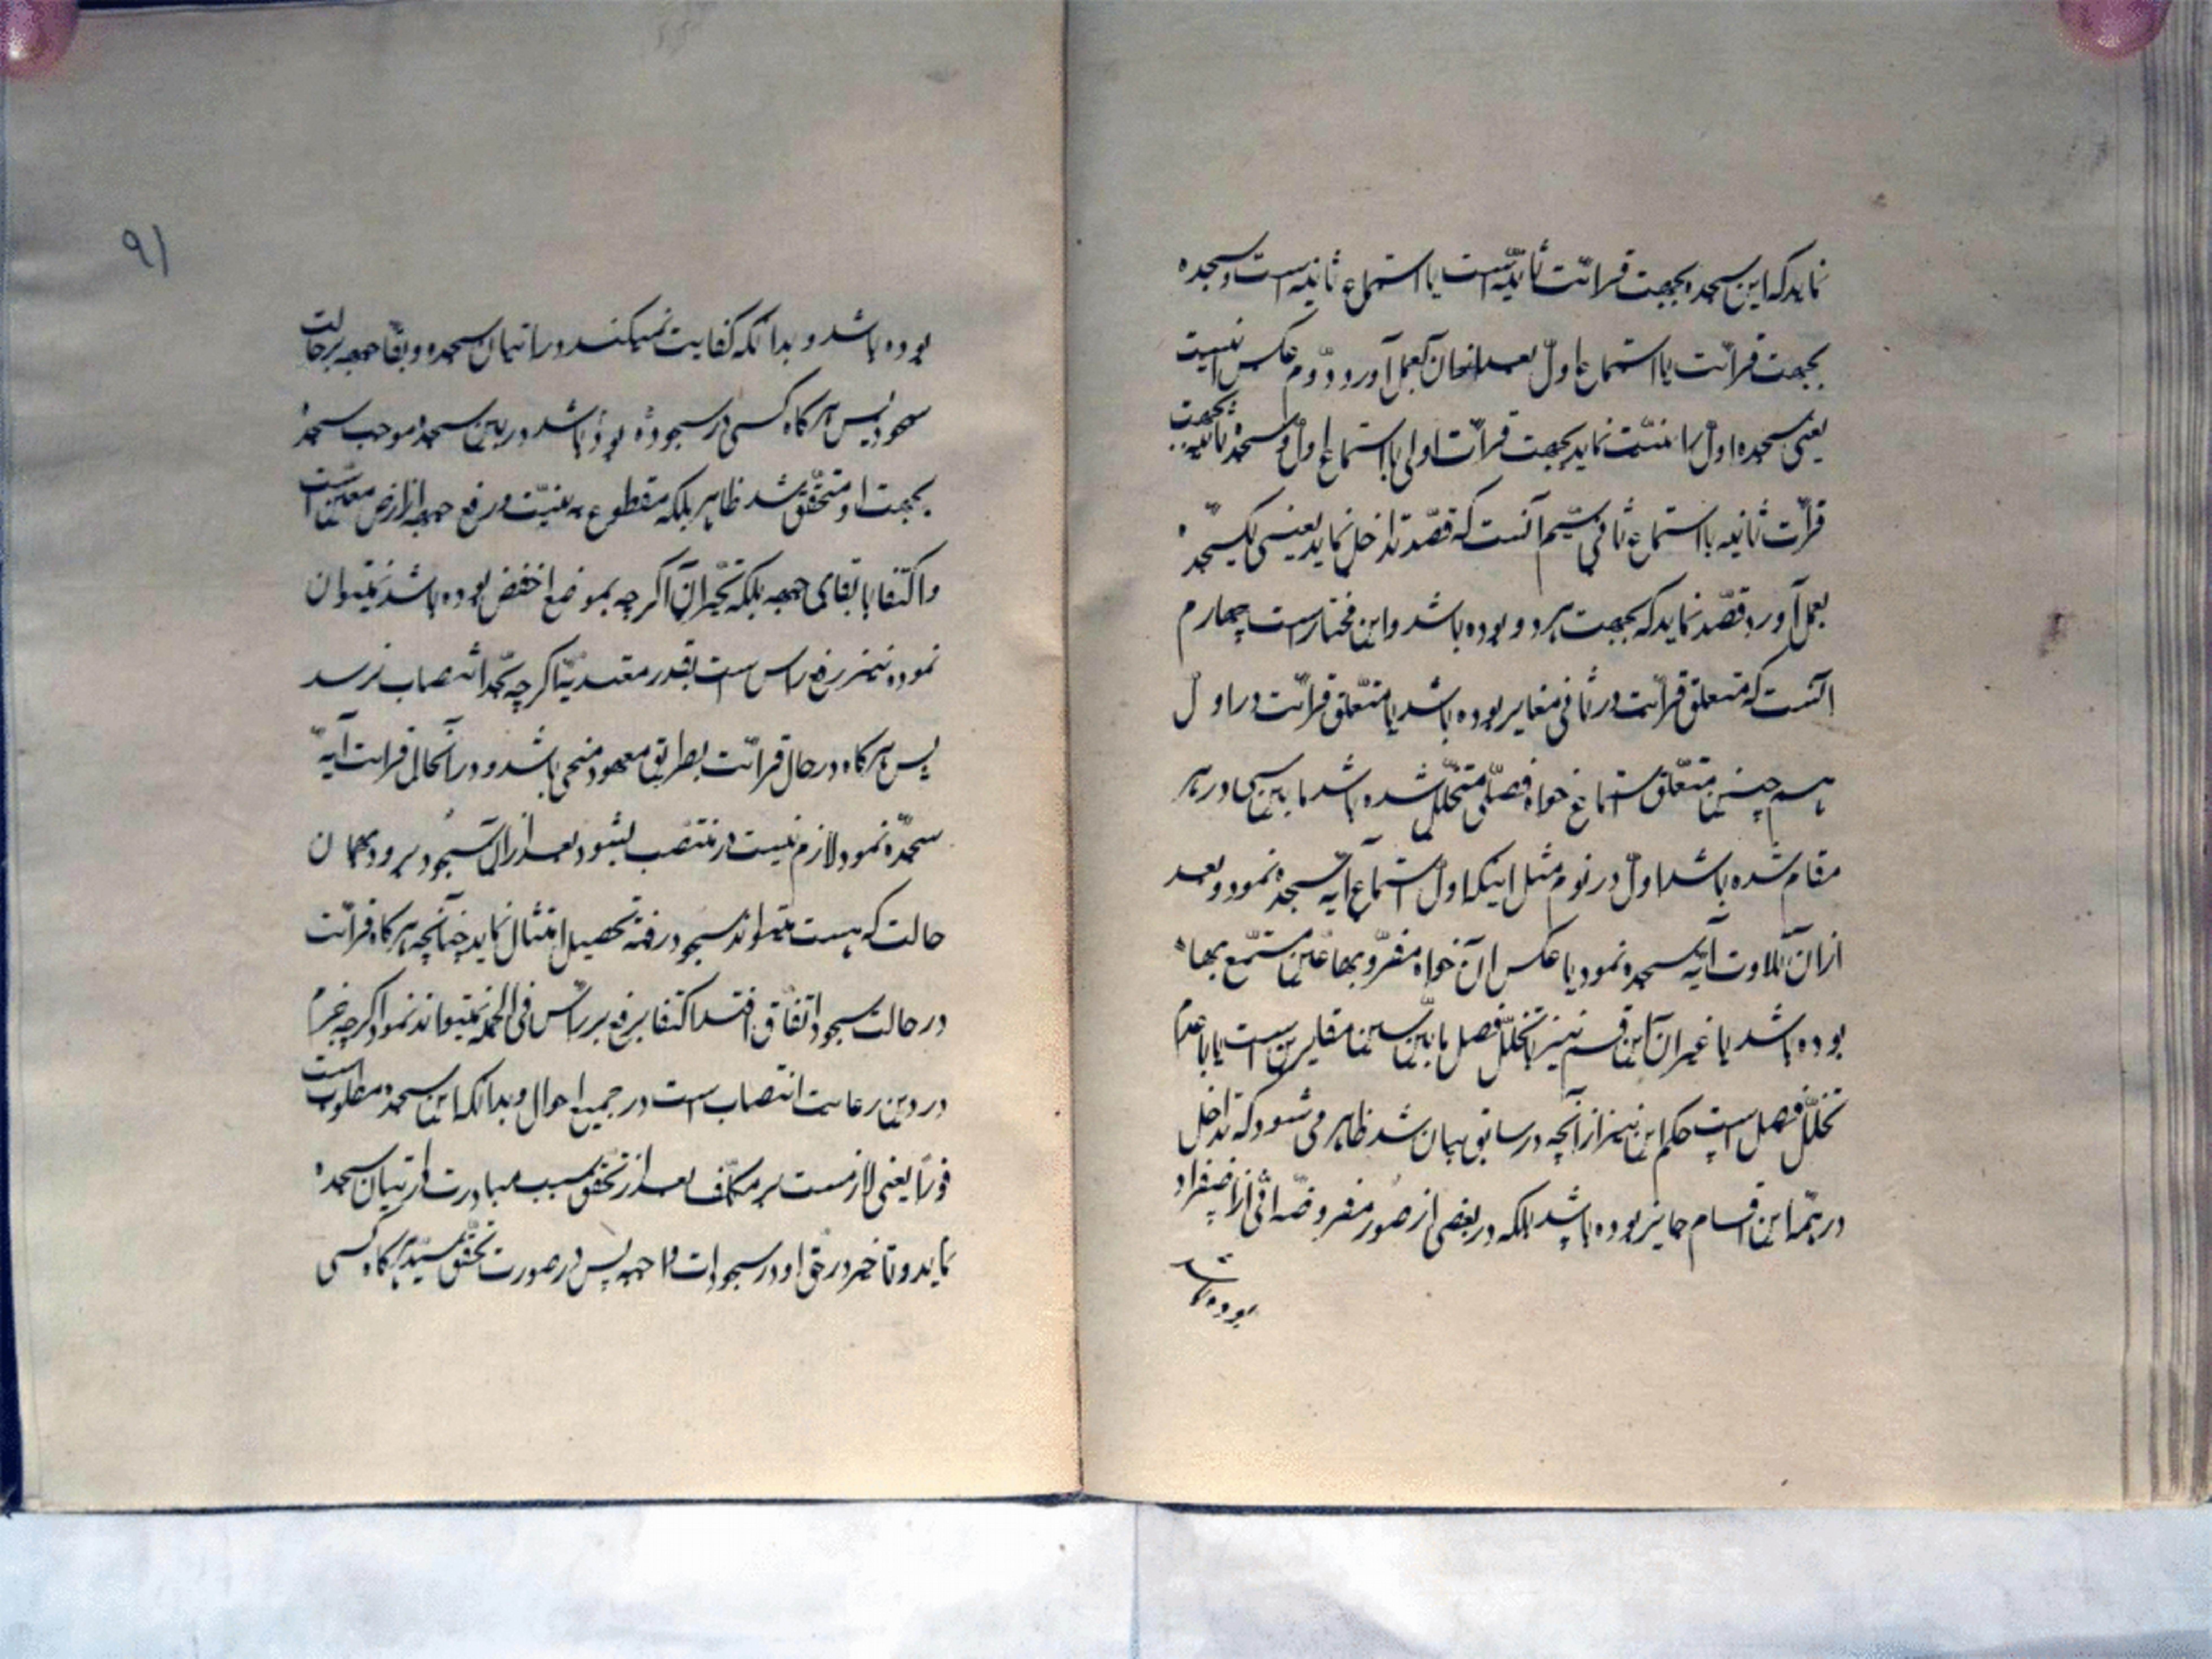 نماید که این سجده بجهت قرائت ثانیه است یا استماع ثانیه است و سجده
بجهت قرائت یا استماع اول بعد از آن بعمل آورد دوم عکس اینست
یعنی سجده اول را نیت نماید بجهت قرائت اولی یا استماع اول و سجده ثانیه بجهت
قرائت ثانیه یا استماع ثانی سیم آنست که قصد تداخل نماید یعنی یک سجده
بعمل آورد قصد نماید که بجهت هر دو بوده باشد و این مختار است چهارم
آنست که متعلق قرائت در ثانی مغایر بوده باشد با متعلق قرائت در اول
همچنین متعلق استماع خواه فصلی متخلل شده باشد ما بین سجود در هر
مقام شده باشد اول در نوم مثل اینکه اول استماع آیه سجده نمود و بعد
از آن تلاوت آیه سجده نمود یا عکس آن خواه مقرو بها عین مستمع بها
بوده باشد یا غیر آن این قسم نیز با تخلل فصل ما بین سببین مقایرین است یا با عدم
تخلل فصل است حکم این نیز از آنچه در سابق بیان شد ظاهر می شود که تداخل
در همه این اقسام جایز بوده باشد بلکه در بعضی از صور مفروضه اوفی از انفراد
بوده باشد
۹۱
بوده باشد و بدانکه کفایت نمیکند در اتیان سجده و بقا جبهه بر حالت
سجود پس هر گاه کسی در سجود بوده باشد در بین سجده موجب سجده
بجهت او متحقق شد ظاهر بلکه مقطوع به نیت و رفع جبهه از ارض معین است
و اکتفا با بقای جبهه بلکه بجر آن اگر چه بموضع اخفض بوده باشد نمیتوان
نموده نیز رفع راس است بقدر معتد به اگر چه بحد انتصاب نرسد
پس هر گاه در حال قرائت بطریق معهود منحنی باشد و در آنحال قرائت آیه
سجده نمود لازم نیست در منتصب بشود بعد از آن بسجود برود بهمان
حالت که هست میتواند بسجود رفته تحصیل امتثال نماید چنانچه هر گاه قرائت
در حالت سجود اتفاق افتد اکتفا برفع بر راس فی الجمله میتواند نمود اگر چه حزم
در دین رعایت انتصاب است در جمیع احوال و بدانکه این سجده مطلوب است
فوراً یعنی لازمست بر مکلف بعد از تحقق سبب مبادرت در اتیان سجده
نماید و تاخیر در حق او در سجودات واجبه پس در صورت تحقق سبب هر گاه کسی